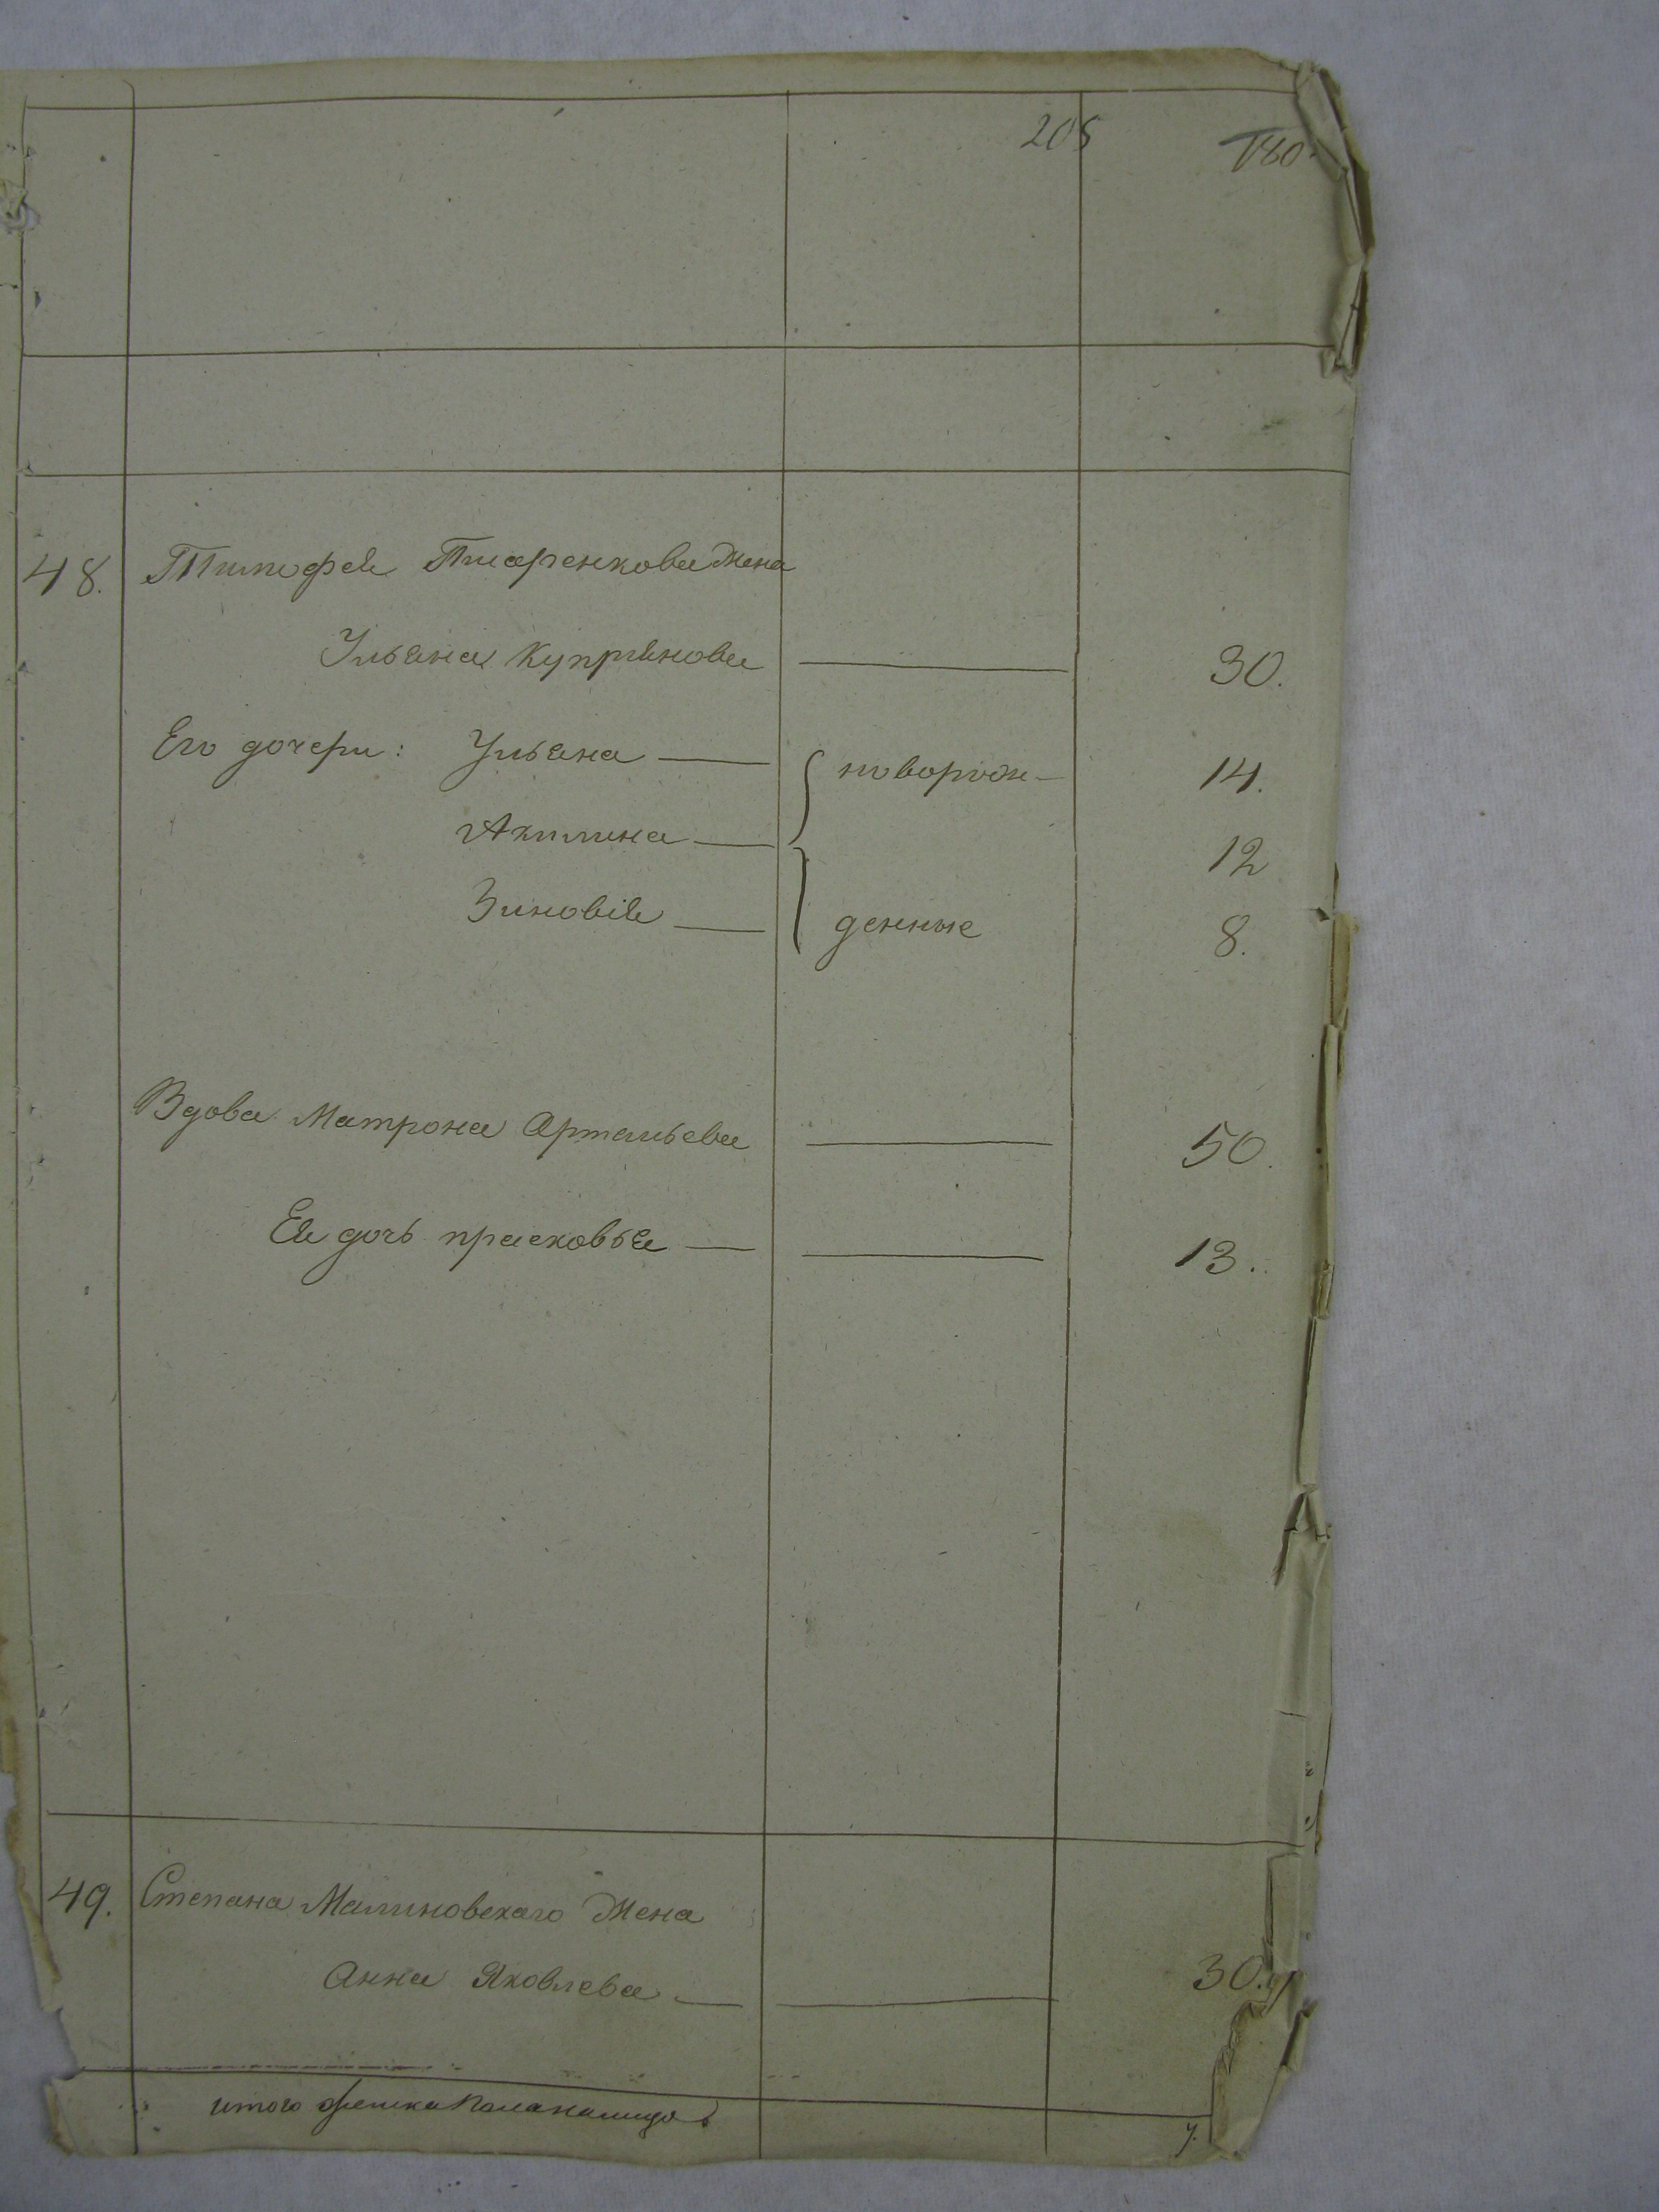 205
180
48. Тимофея Жена
Ульяна Куприянова 30.
Его дочери: Ульяна { новорож- 14.
Акилина 12
Зиновія денные 8.
Вдова Матрона Артемьева 50.
Ея дочь прасковья 13.
49. Степана Малиновскаго Жена
Анна Яковлева 30.
итого женска пола налицо 7.